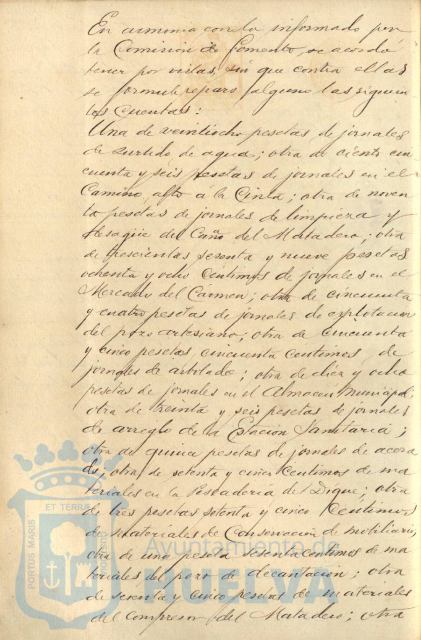 En armonia con lo informado por
la Comision de Fomento, se acordo
tener por vistas, sin que contra ellas
se formule reparo alguno las siguien
tes Cuentas:
Una de veintiocho pesetas, de jornales
de surtido de agua; otra de ciento cin
cuenta y seis pesetas de jornales en el
Camino alto á la Cinta; otra de noven
ta pesetas de jornales de limpieza y
desagüe del Caño del Matadero; otra
de trescientas sesenta y nueve pesetas
ochenta y ocho centimos de jornales en el
Mercado del Carmen; otra de cincuenta
y cuatro pesetas de jornales de explotacion
del pozo artesiano; otra de cincuenta
y cinco pesetas cincuenta centimos, de
jornales de arbolado; otra de diez y ocho
pesetas de jornales en el Almacen municipal;
otra de treinta y seis pesetas de jornales
de arreglo de la Estacion Sanitaria;
otra de quince pesetas de jornales de acera
do; otra de setenta y cinco centimos de ma
teriales en la Pescaderia del Dique; otra
de tres pesetas setenta y cinco centimos
de materiales de Conservacion de mobiliario;
otra de una peseta sesenta centimos de ma
teriales del pozo de decantacion; otra
de sesenta y cinco pesetas de materiales
del Compresor del Matadero; otra
PORTUS MARIS
ET TERRAE
Ayuntamiento de
HUELVA